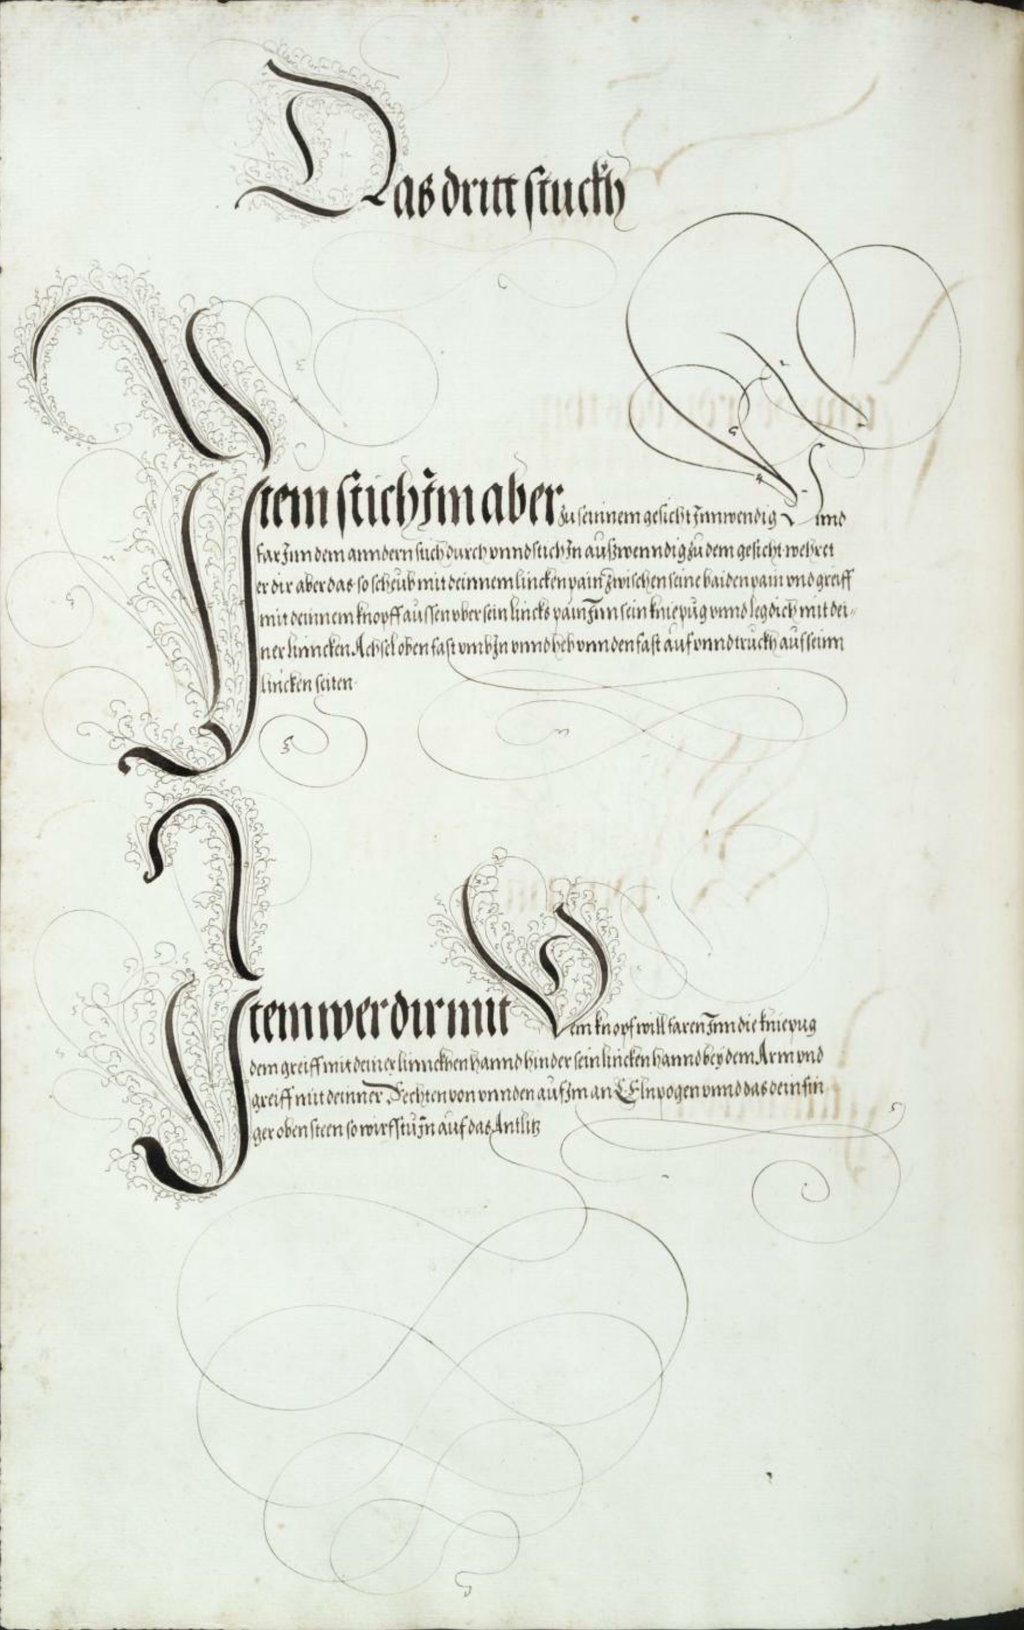 Das dritt stuckh
Item stich Im aber zu seinnem gesicht Inwendig Unnd
far Inn dem anndern stich durch vnnd stich In außwenndig zu dem gesicht wehret
er dir aber das so scheub mit deinnem lincken pain zwischen seine baiden pain vnd greiff
mit deinnem knopff aussen vber sein lincks pain Inn sein kniepug vnnd leg dich mit dei-
ner linncken Achsel oben fast vmb In vnnd heb vnnden fast auf vnnd truckh auf seinn
lincken seiten
Item wer dir mit Dem knopf will faren Inn die kniepug
dem greiff mit deiner linnckhen hannd hinder sein lincken hannd bey dem Arm vnd
greiff mit deinner Rechten von vnnden auf Im an Elnpogen vnnd das dein fin
ger oben steen so wirfstu In auf das Antlitz